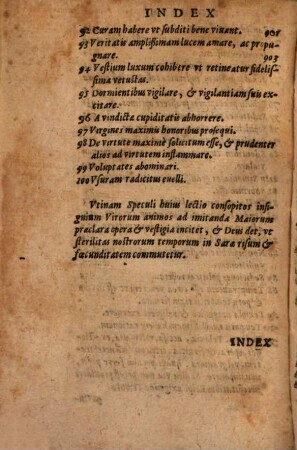 INDEX
92 Curam habere vt subditi bene viuant. 901
93 Veritatis amplissimam lucem amare, ac propu-
gnare. 903
94 Vestium luxum cohibere vt retineatur fidelis-
sima vetustas.
95 Dormientibus vigilare, & vigilantiam suis ex-
citare.
96 A vindictæ cupiditatis abhorrere.
97 Virgines maximis honoribus prosequi.
98 De virtute maximè solicitum esse, & prudenter
alios ad virtutem inflammare.
99 Voluptates abominari.
100 Vsuram radicitus euelli.
Vtinam Speculi huius lectio consopitos insi-
gnium Virorum animos ad imitanda Maiorum
præclara opera & vestigia incitet, & Deus det, vt
sterilitas nostrorum temporum in Saræ risum &
fœcunditatem commutetur.
INDEX